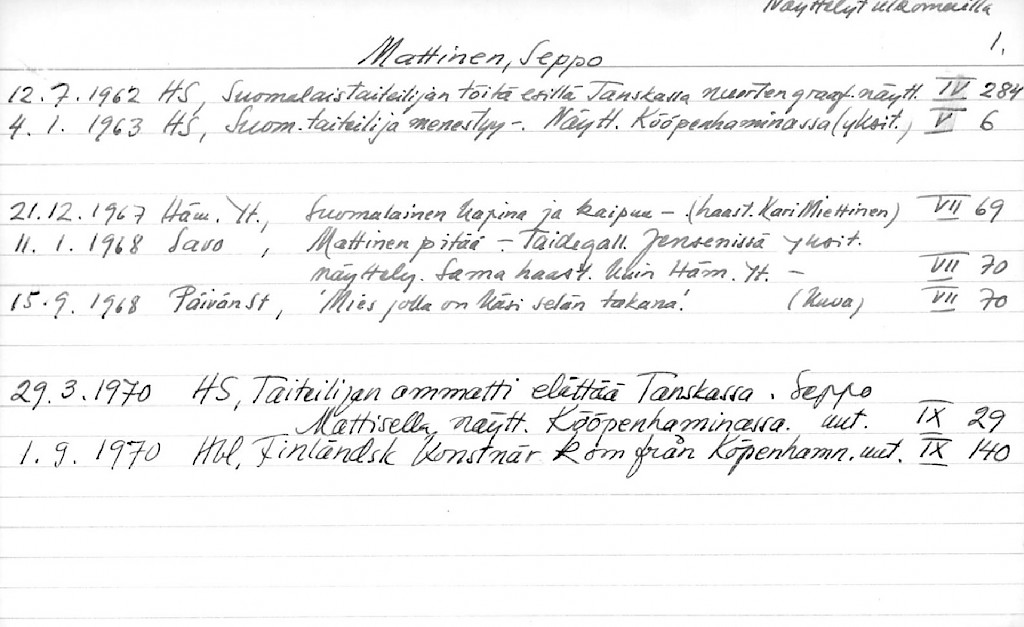 Näyttelyt ulkomailla
1.
Mattinen, Seppo
12.7.1962 HS, Suomalaistaiteilijan töitä esillä Tanskassa nuorten graaf. näytt. IV 284
4.1.1963 HS, Suom. taiteilija menestyy -. Näytt. Kööpenhaminassa (yksit.) V 6
21.12.1967 Häm. Yt., Suomalainen kapina ja kaipuu - (haast. Kari Miettinen) VII 69
11.1.1968 Savo, Mattinen pitää - Taidegall. Jensenissä yksit.
näyttely. Sama haast. kuin Häm. Yt. - VII 70
15.9.1968 Päivän St, 'Mies jolla on käsi selän takana'. (kuva) VII 70
29.3.1970 HS, Taiteilijan ammatti elättää Tanskassa. Seppo
Mattisella näytt. Kööpenhaminassa. uut. IX 29
1.9.1970 Hbl, Finländsk konstnär kom från Köpenhamn. uut. IX 140